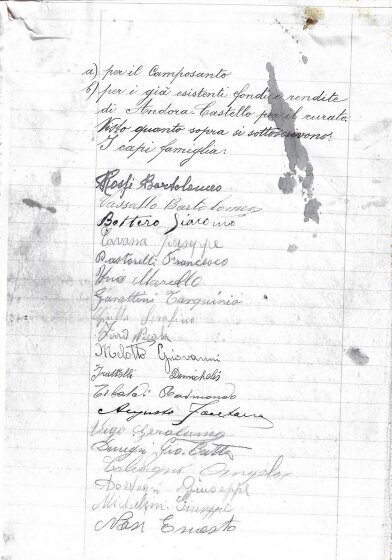 a) per il Camposanto
b) per i già esistenti fondi e rendite
di Andora-Castello per il curato
Visto quanto sopra si sottoscrivono
I capi famiglia:
Rossi Bartolomeo
Vassallo Bartolomeo
Bottero Giacomo
Cavassa Giuseppe
Pastorelli Francesco
Marcello
Garattini Tarquinio
Serafino
Melotto Giovanni
Fratelli Domichelis
Tibaldi Raimondo
Augusto
Gerolamo
Gio. Batta
Calcagno Angelo
Giuseppe
Michelini Giuseppe
Nan Ernesto